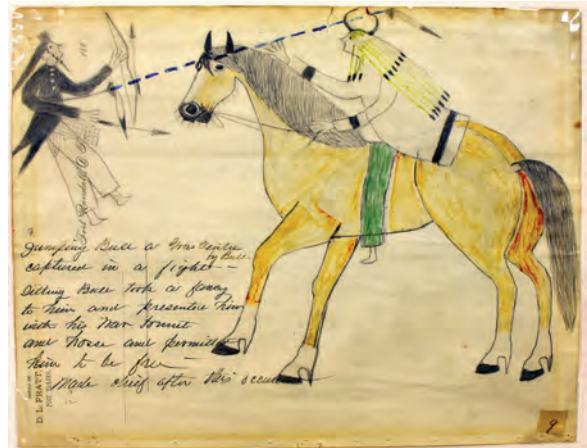 188
Fort Randall D.T.
Jumping Bull a Gros Ventre
captured in a fight — by Bull.
Sitting Bull took a fancy
to him and presented him
with his War bonnet
and horse and permitted
him to be free —
Made chief after this
D. L. PRATT,
POST TRADER,
9